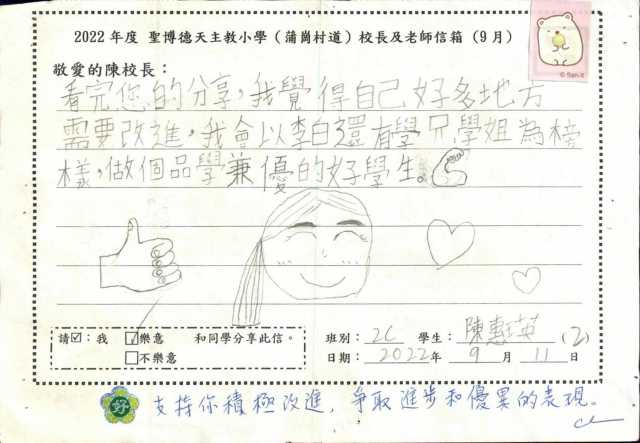 2022 年度 聖博德天主教小學（蒲崗村道）校長及老師信箱（9 月）
敬愛的陳校長：
看完您的分享，我覺得自己好多地方
需要改進，我會以李白還有學兄學姐為榜
樣，做個品學兼優的好學生。
請☑：我 ☑樂意 和同學分享此信。
□不樂意
班別：2C 學生：陳惠英 (2)
日期：2022年 9 月 11 日
好 支持你積極改進，爭取進步和優異的表現。